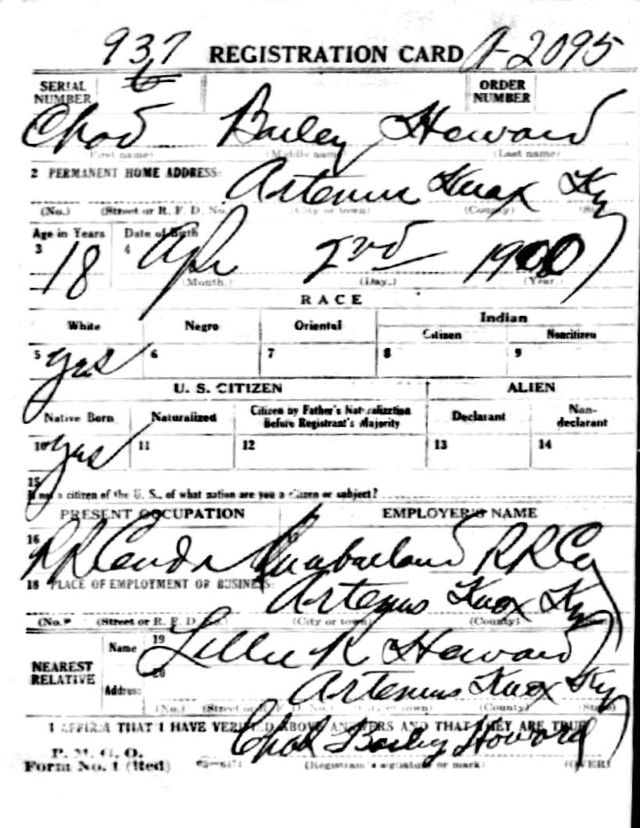 937 REGISTRATION CARD A-2095
6
SERIAL NUMBER ORDER NUMBER
Chad Bailey Howard
(First name) (Middle name) (Last name)
2 PERMANENT HOME ADDRESS:
Artemus Knox Ky
(No.) (Street or R. F. D. No.) (City or town) (County)
Age in Years Date of Birth
3 18 4 Apr 2nd 1900
(Month.) (Day.) (Year.)
RACE
White Negro Oriental Indian
Citizen Noncitizen
5 Yes 6 7 8 9
U. S. CITIZEN ALIEN
Native Born Naturalized Citizen by Father's Naturalization Before Registrant's Majority Declarant Non-declarant
10 Yes 11 12 13 14
15
If not a citizen of the U. S., of what nation are you a citizen or subject?
PRESENT OCCUPATION EMPLOYER'S NAME
16 RR Cumberland R R Co
18 PLACE OF EMPLOYMENT OR BUSINESS:
Artemus Knox Ky
(No.) (Street or R. F. D. No.) (City or town) (County)
NEAREST RELATIVE
Name 19 Lillie R Howard
Address 20 Artemus Knox Ky
(No.) (Street or R. F. D. No.) (City or town) (County) (State)
I AFFIRM THAT I HAVE VERIFIED ABOVE ANSWERS AND THAT THEY ARE TRUE
P. M. G. O.
Form No. 1 (Red) Chad Bailey Howard
(Registrant's signature or mark) (OVER)